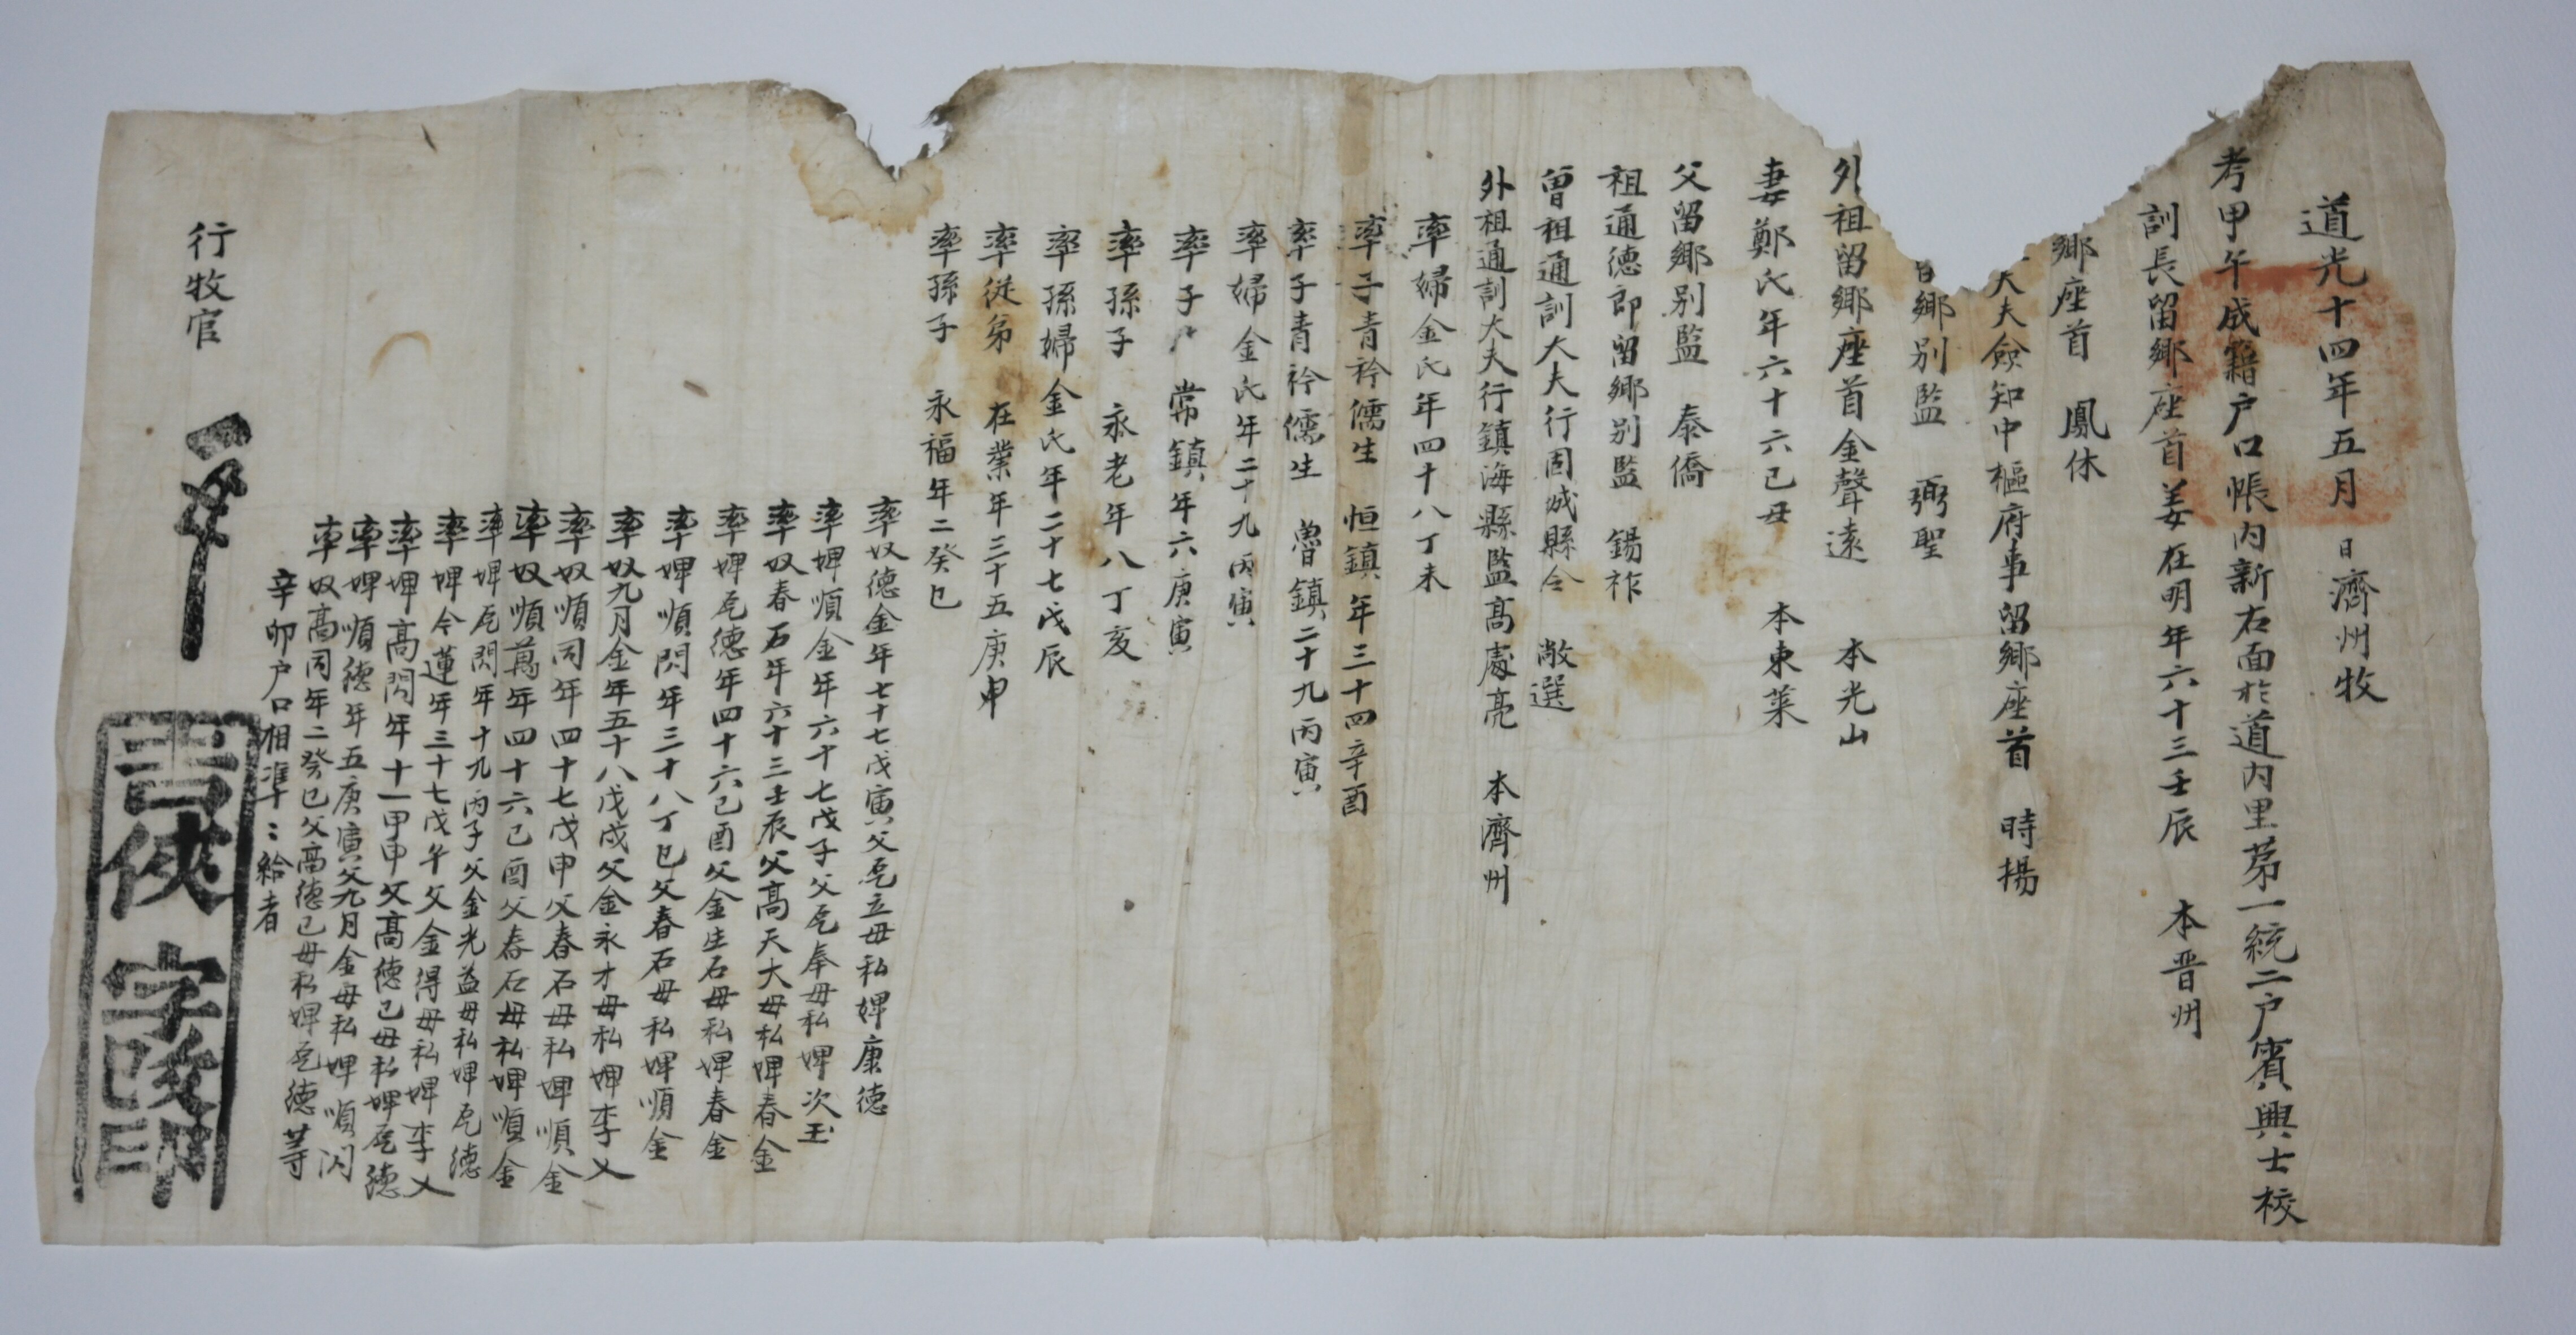 道光十四年五月 日濟州牧
考甲午成籍戶口帳內新右面於道內里第一統二戶賓興士校
訓長留鄉座首姜在明年六十三壬辰 本晋州
鄉座首 鳳休
大夫僉知中樞府事留鄉座首 時揚
鄉別監 弼聖
外祖留鄉座首金聲遠 本光山
妻鄭氏年六十六己丑 本東萊
父留鄉別監 泰僑
祖通德郎留鄉別監 錫祚
曾祖通訓大夫行固城縣令 敞選
外祖通訓大夫行鎮海縣監高處亮 本濟州
率婦金氏年四十八丁未
率子青衿儒生 恒鎮年三十四辛酉
率子青衿儒生 魯鎮二十九丙寅
率婦金氏年二十九丙寅
率子 常鎮年六庚寅
率孫子 永老年八丁亥
率孫婦金氏年二十七戊辰
率從弟 在業年三十五庚申
率孫子 永福年二癸巳
率奴德金年七十七戊寅父乭立母私婢康德
率婢順金年六十七戊子父乭奉母私婢次玉
率奴春石年六十三壬辰父高天大母私婢春金
率婢乭德年四十六己酉父金生石母私婢春金
率婢順閃年三十八丁巳父春石母私婢順金
率奴九月金年五十八戊戌父金永才母私婢李乂
率奴順同年四十七戊申父春石母私婢順金
率奴順萬年四十六己酉父春石母私婢順金
率婢乭閃年十九丙子父金光益母私婢乭德
率婢今蓮年三十七戊午父金得母私婢李乂
率婢高閃年十一甲申父高德己母私婢乭德
率婢順德年五庚寅父九月金母私婢順閃
率奴高同年二癸巳父高德己母私婢乭德等
辛卯戶口相準〻給者
行牧官